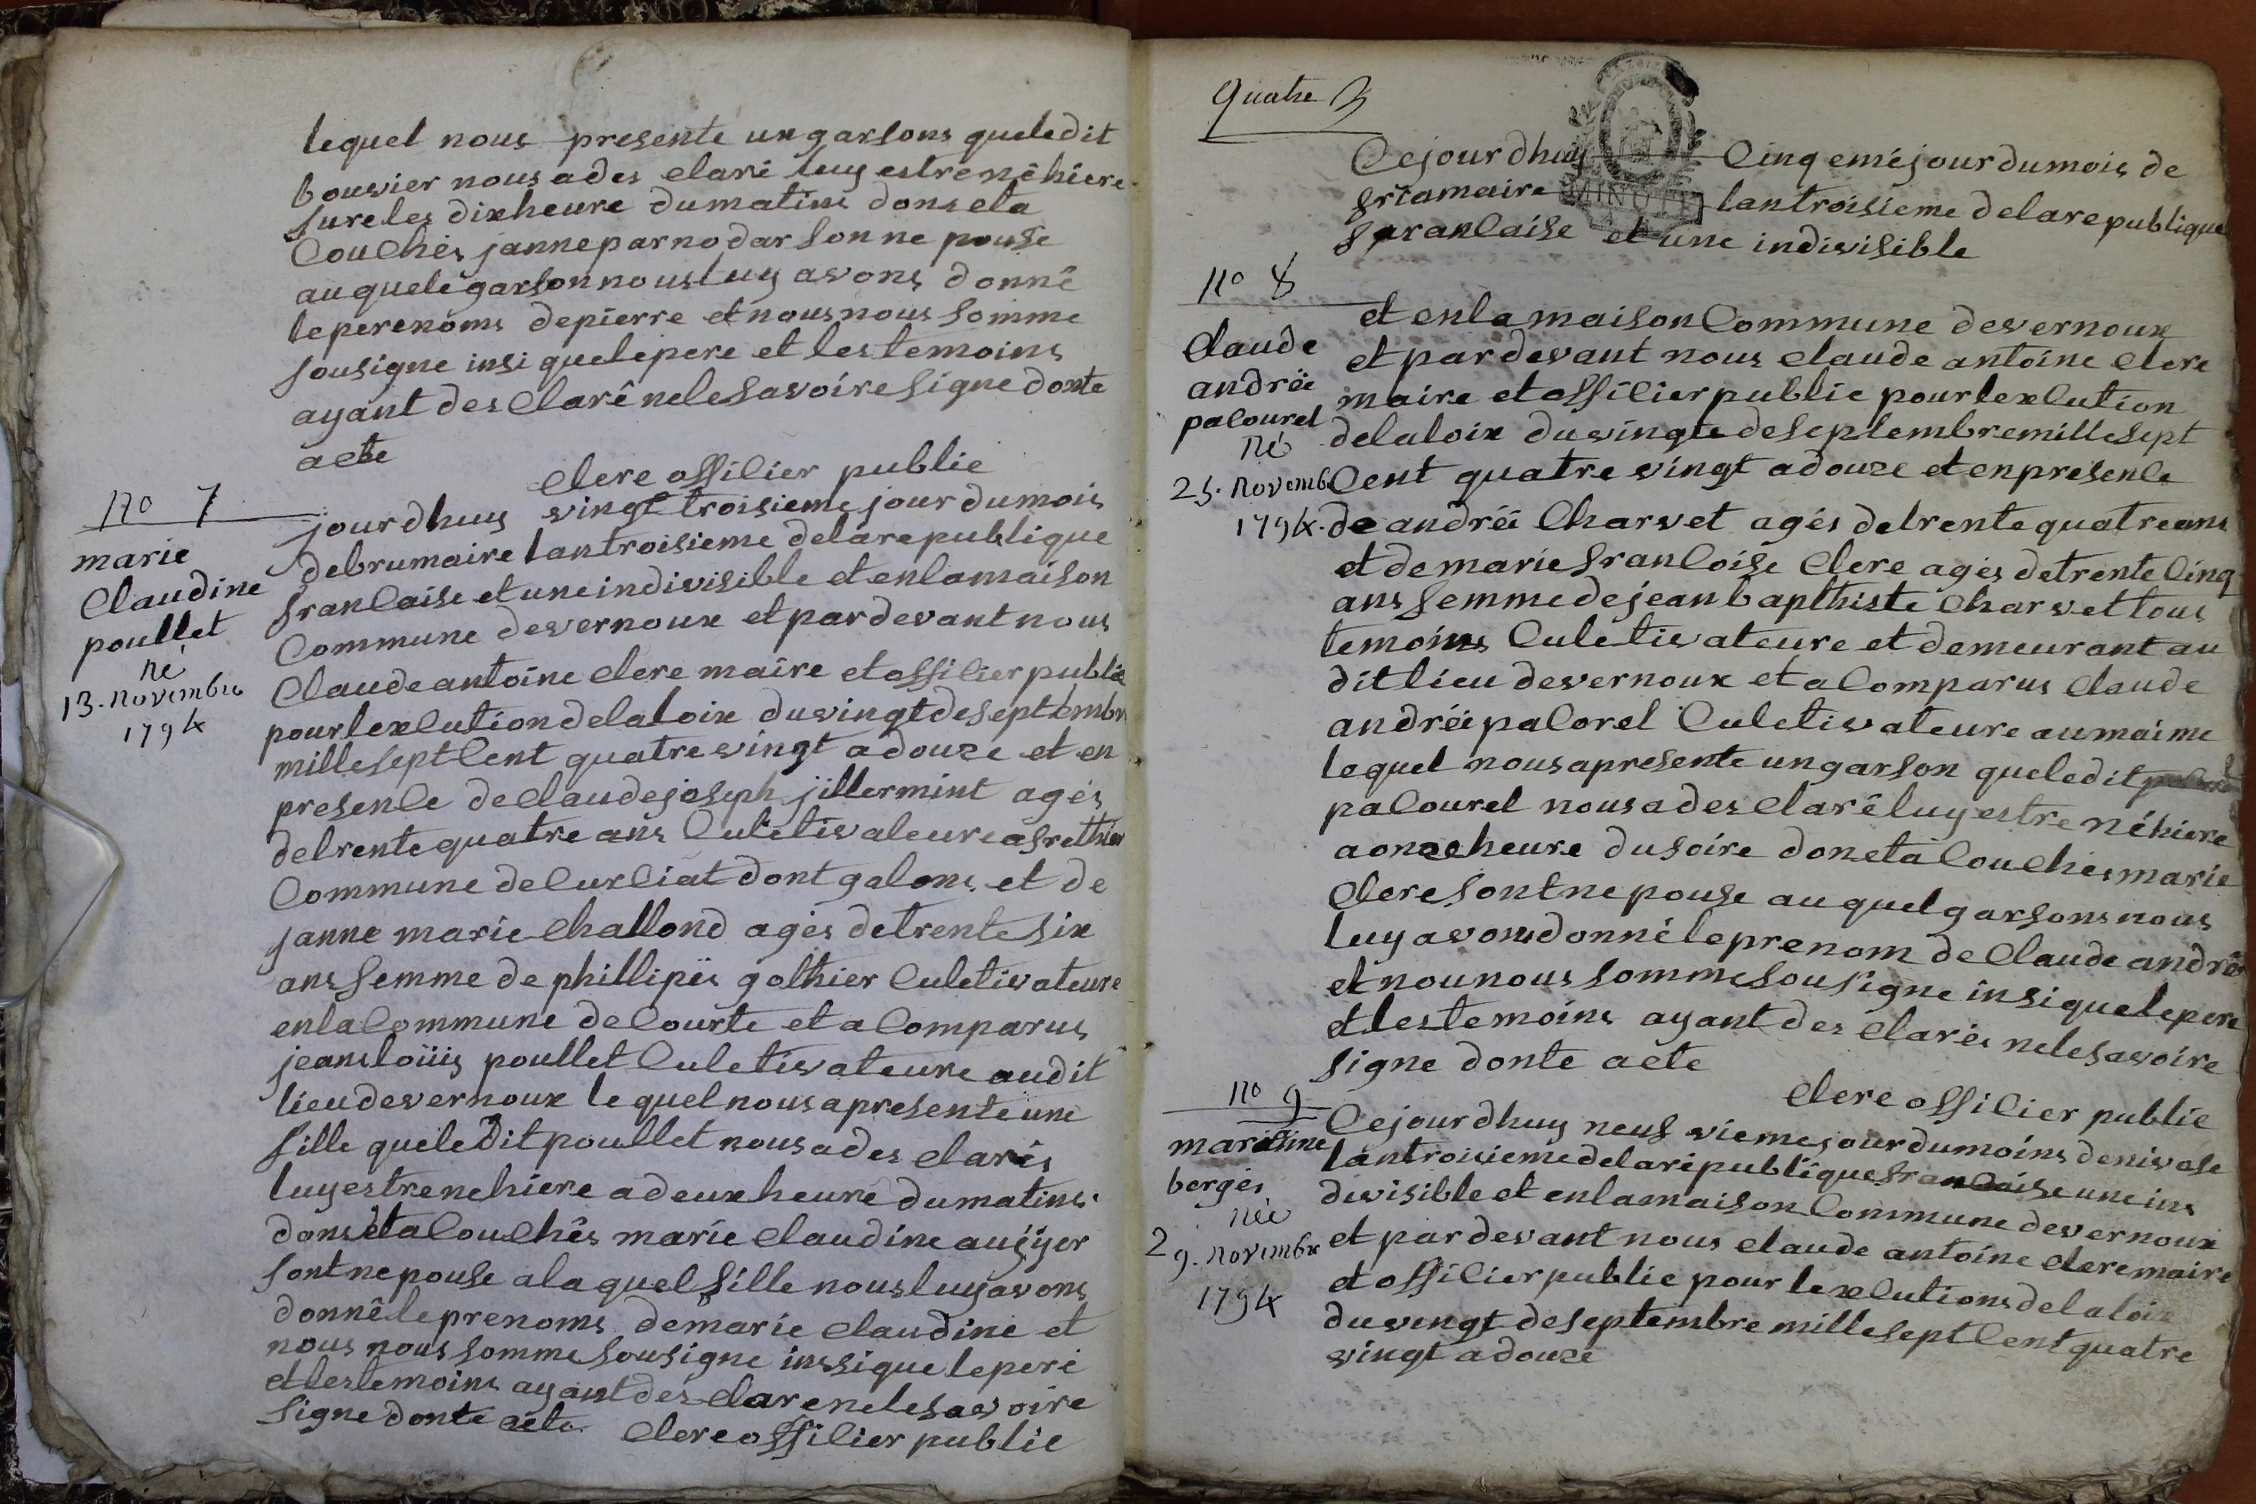 lequel nous presente un garsons queledit
bouvier nous ades elaré luy estre nê hiere
sureles dixheure dumatins dons ela
Couchés janne parnodar son ne pouse
auquele garson nous luy avons donnê
leperenoms depierre et nous nous somme
sousigne insi quelepere et les temoins
ayant des Clarê nele savoire signe donte
acte
Clere offilier publie
no 7
marie
Claudine
poullet
né
13. novembre
1794
jourdhuy vingt troisieme jour dumois
debrumaire lantroisieme delarepublique
franCaise et une indivisible et enlamaison
Commune devernoux et pardevant nous
Claude antoine Clere maire et offilier publie
pourlexCution delaloix duvingt deseptembre
millesept Cent quatre vingt adouze et en
presenCe de Claudejoseph jillermint agés
detrente quatre ans Culetivateure afrethier
Commune de Curciat dont galons et de
janne marie Challond agés detrente six
ans femme de phillipës golthier Culetivateure
enlaCommune de Courte et a Comparus
jeans loüis poullet Culetivateure audit
lieu devernoux lequel nous apresente une
fille queledit poullet nous ades clarés
luy estre nehiere adeux heure dumatins
dons eta Couchés marie Claudine
sont ne pouse ala quel fille nous luy avons
donnê le prenoms demarie Claudine et
nous nous somme sousigne inssi que lepere
et les temoins ayant des Clare nele savoire
signe donte acte Clere offilier publie
Quatre
Cejourdhuy Cinqemé jour dumois de
friamaire MINUTE lantroisieme delarepublique
franCaise et une indivisible
no 8
Claude
andrée
paCourel
né
25. novemb
1794.
et enla maison Commune devernoux
et pardevant nous Claude antoine Clere
maire et offilier publie pour lexCution
delaloix duvingte deseptembre millesept
Cent quatre vingt adouze et en presenCe
de andréë Charvet agés detrente quatre ans
et de marie franCoise Clere agés detrente Cinq
ans femme dejean bapthiste Charvet tous
temoins Culetivateure et demeurant au
dit lieu devernoux et a Comparus Claude
andréë paCorel Culetivateure aumaime
lequel nous apresente un garson queledit
paCourel nous ades Clarê luy estre né hiere
a onze heure dusoire dons eta Couchés marie
Clere sont ne pouse auquel garsons nous
luy avons donné leprenom de Claude andrée
et nou nous somme sousigne insi que lepere
et les temoins ayant des Clarés nele savoire
signe donte acte
Clere offilier publie
no 9
marianne
bergés
née
29. novembre
1794
Cejourdhuy neuf vieme jour dumoins denivose
lantroisieme delarépublique franCaise une ins
divisible et enlamaison Commune devernoux
et pardevant nous Claude antoine Clere maire
et offilier publie pour lexCutions delaloix
duvingt deseptembre millesept Cent quatre
vingt adouze